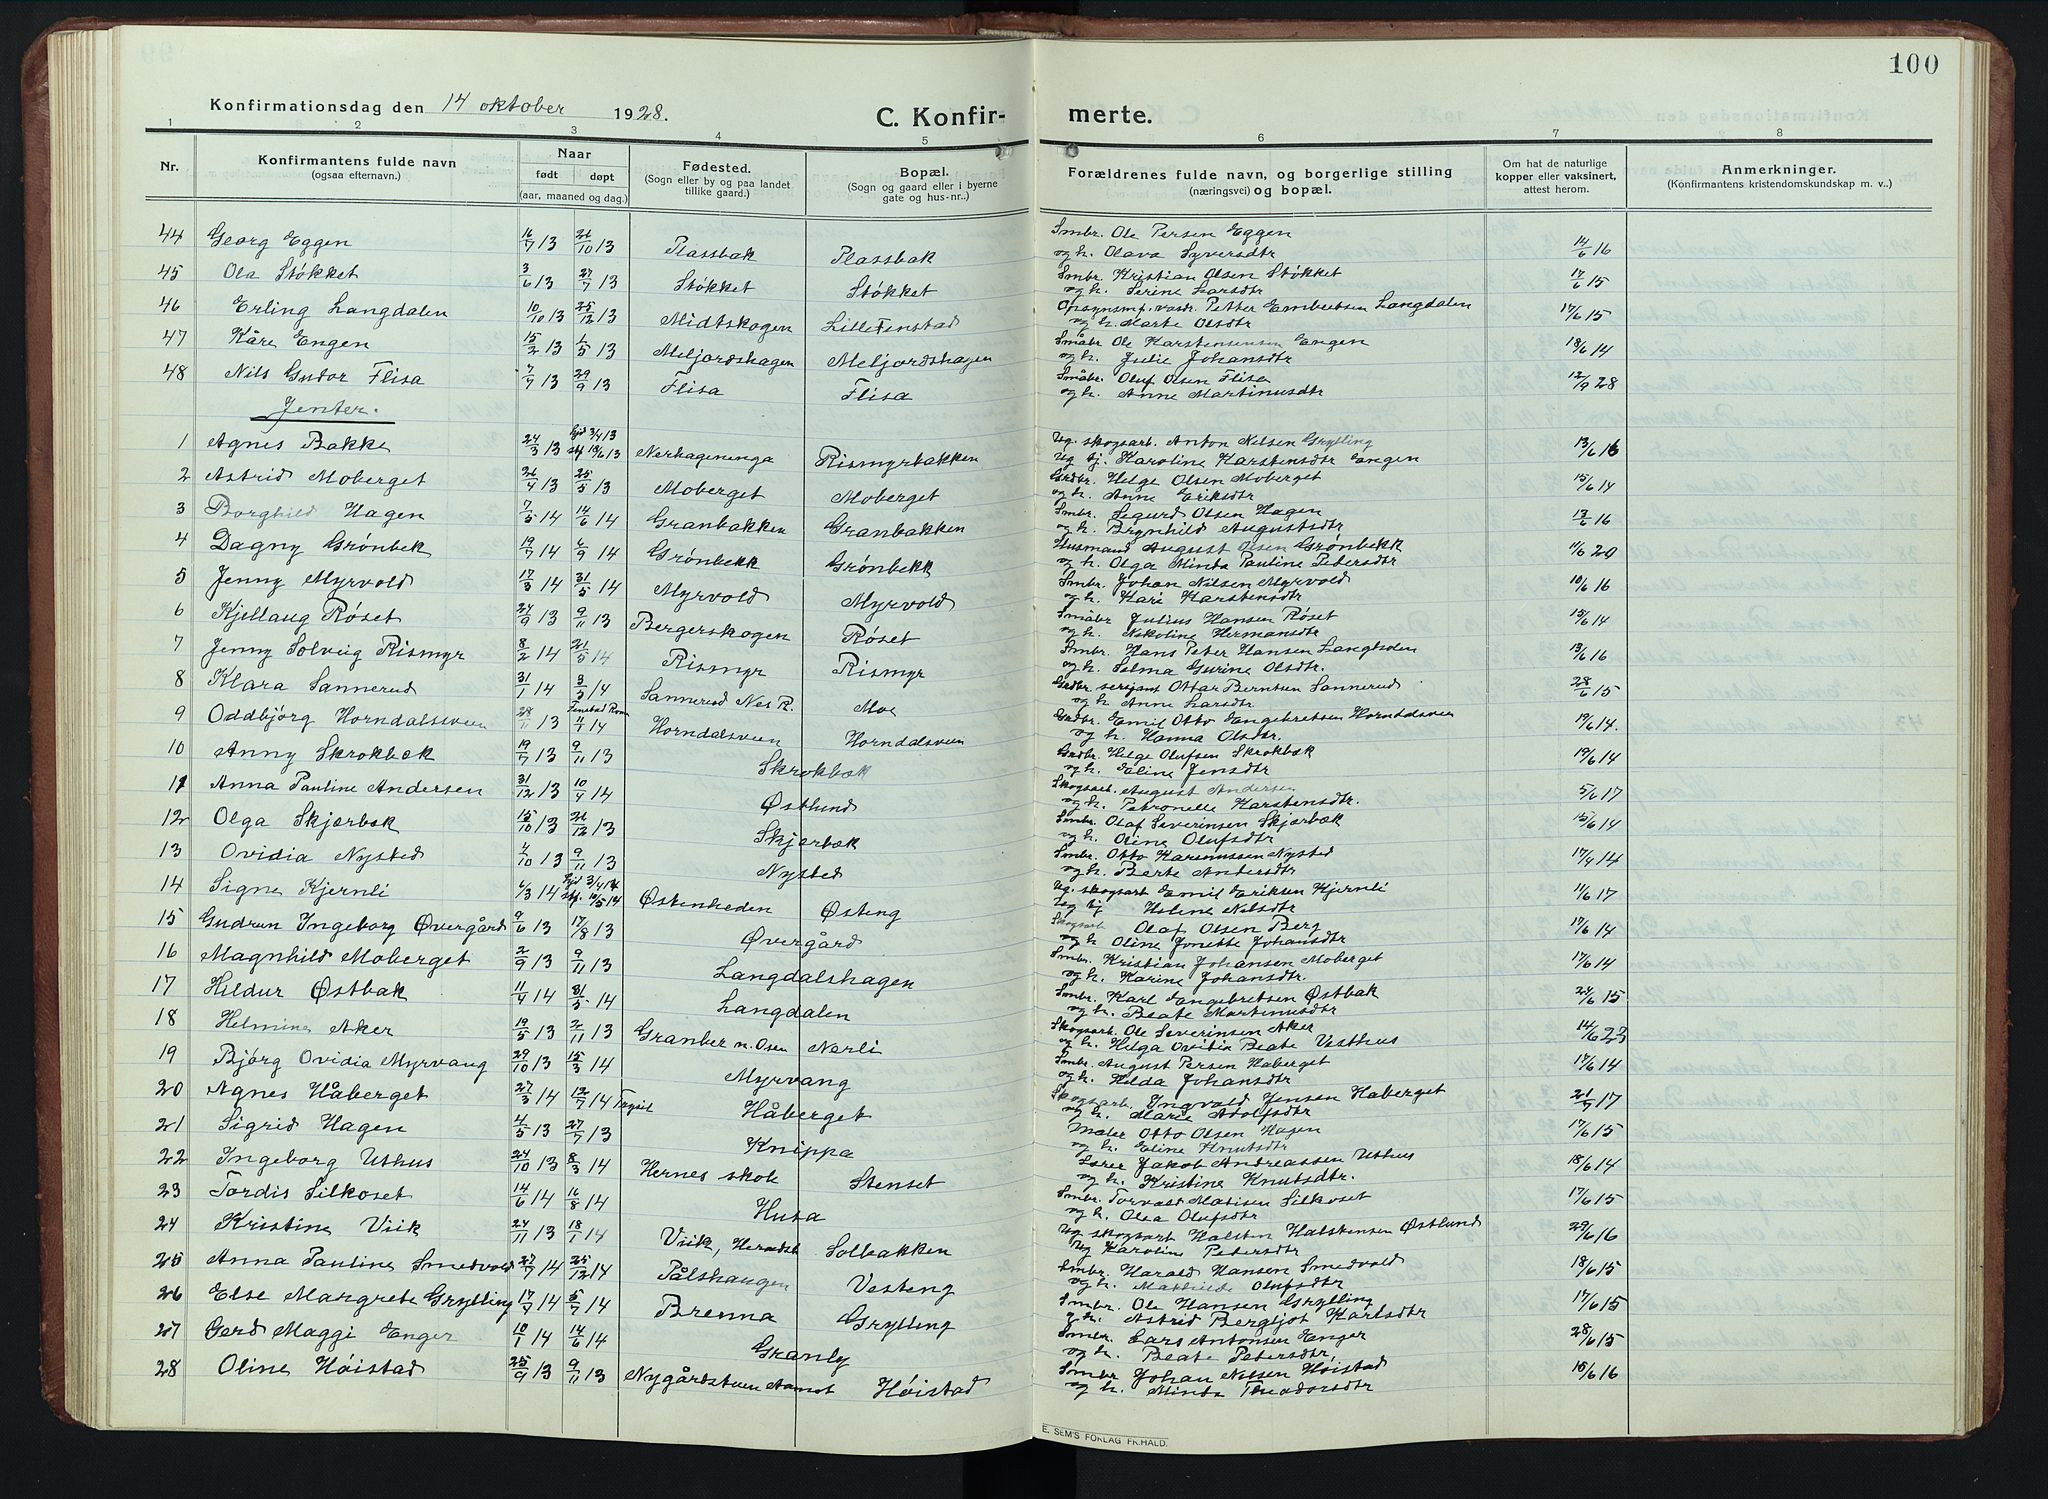 100
Konfirmationsdag den 14 oktober 1928.
C. Konfir-
merte.
1 2 3 4 5 6 7 8
Nr. Konfirmantens fulde navn (ogsaa efternavn.) Naar født døpt (aar, maaned og dag.) Fødested. (Sogn eller by og paa landet tillike gaard.) Bopæl. (Sogn og gaard eller i byerne gate og hus-nr..) Forældrenes fulde navn, og borgerlige stilling (næringsvei) og bopæl. Om hat de naturlige kopper eller vaksinert, attest herom. Anmerkninger. (Konfirmantens kristendomskundskap m. v..)
44 Georg Eggen 16/7 13 26/10 13 Plassbak Plassbak Smbr. Ole Persen Eggen 14/6 16
og h. Olava Syversdtr
45 Ola Støkket 3/6 13 27/7 13 Støkket Støkket Smbr. Kristian Olsen Støkket 17/6 15
og h. Serine Larsdtr
46 Erling Langdalen 10/10 13 25/12 13 Midtskogen Lille Fenstad Petter Embretsen Langdalen 17/6 15
og h. Marte Olsdtr
47 Kåre Engen 15/2 13 1/5 13 Meljordshagen Meljordshagen Småbr Ole Karstensen Engen 18/6 14
og h. Julie Johansdtr
48 Nils Gudor Flisa 7/9 13 29/9 13 Flisa Flisa Småbr. Oluf Olsen Flisa 12/9 28
og h. Anne Martinusdtr
Jenter.
1 Agnes Bakke 24/3 13 hjd 3/4 13 stf 19/6 13 Nerhagenenga Rismyrbakken Ug. skogsarb. Anton Nilsen Grylling 13/6 16
Ug tj. Karoline Karstensdtr Engen
2 Astrid Moberget 26/4 13 25/5 13 Moberget Moberget Grdbr. Helge Olsen Moberget 15/6 14
og h. Anne Eriksdtr
3 Borghild Hagen 7/5 14 14/6 14 Granbakken Granbakken Smbr. Sigurd Olsen Hagen 13/6 16
og h. Brynhild Augustsdtr
4 Dagny Grønbek 19/7 14 6/9 14 Grønbekk Grønbekk Husmand August Olsen Grønbekk 11/6 20
og h. Olga Minda Pauline Petersdtr
5 Jenny Myrvold 17/3 14 31/5 14 Myrvold Myrvold Smbr. Johan Nilsen Myrvold 10/6 16
og h. Kari Karstensdtr
6 Kjellaug Røset 24/9 13 9/11 13 Bergerskogen Røset Småbr Julius Hansen Røset 15/6 14
og h. Nikoline Hermansdtr
7 Jenny Solveig Rismyr 8/2 14 21/5 14 Rismyr Rismyr Smbr. Hans Peter Hansen 13/6 16
og h. Selma Gurine Olsdtr.
8 Klara Sannerud 31/1 14 3/5 14 Sannerud Nes R. Moe Grdbr. serjant Ottar Berntsen Sannerud 28/6 15
og h. Anne Larsdtr
9 Oddbjørg Horndalsveen 28/11 13 4/1 14 Horndalsveen Horndalsveen Grdbr. Emil Otto Engebretsen Horndalsveen 19/6 14.
og h. Hanna Olsdtr.
10 Anny Skrokbæk 19/7 13 9/11 13 Skrokbæk Grdbr. Helge Olufsen Skrokbæk 19/6 14
og h. Eline Jensdtr
11 Anna Pauline Andersen 31/12 13 10/4 14 Østlund Skogsarb. August Andersen 5/6 17
og h. Petronelle Karstensdtr.
12 Olga Skjærbæk 15/10 13 26/12 13 Skjærbæk Smbr. Olaf Severinsen Skjærbæk 15/6 14
og h. Oline Olufsdtr
13 Ovidia Nysted 4/10 13 9/11 13 Nysted Smbr. Otto Rasmussen Nysted 17/4 14
og h. Berte Andersdtr
14 Signe Kjernli 6/3 14 hjd 3/4 14 stf. 10/5 14 Østenheden Østeng Ug. skogsarb Emil Eriksen Kjernli 11/6 17
og tj Helene Nilsdtr
15 Gudrun Ingeborg Øvergård 9/6 13 17/8 13 Øvergård Skogsarb Olaf Olsen Berg 17/6 14
og h Oline Jonette Johansdtr
16 Magnhild Moberget 2/9 13 9/11 13 Langdalshagen Smbr. Kristian Johansen Moberget 17/6 14
og h. Karine Johansdtr.
17 Hildur Østbak 11/4 14 31/5 14 Langdalen Smbr. Karl Engebretsen Østbak 24/6 15
og h. Beate Martinusdtr
18 Helmine Aker 19/5 13 2/11 13 Granber n. Osen Nerli Skogsarb. Ole Severinsen Aker 14/6 23
og h. Helga Ovidia Beate Vesthus
19 Bjørg Ovidia Myrvang 29/10 13 15/3 14 Myrvang Smbr. August Persen Haberget 17/6 14
og h. Hilda Johansdtr
20 Agnes Håberget 27/3 14 12/7 14 Trysil Håberget Skogsarb. Ingvald Jensen Haberget 21/7 17
og h. Marie Adolfsdtr
21 Sigrid Hagen 4/5 13 27/7 13 Knippa Maler Otto Olsen Hagen 17/6 15
og h. Eline Knutsdtr
22 Ingeborg Uthus 24/10 13 8/3 14 Hernes skole Stenset Lærer Jakob Andreassen Uthus 18/6 14
og h. Kristine Knutsdtr.
23 Tordis Silkoset 14/6 14 16/8 14 Husa Smbr. Torvald Matisen Silkoset 17/6 15
og h. Olea Olufsdtr
24 Kristine Viik 24/11 13 18/1 14 Viik, Heradsb Solbakken Ug. skogsarb Halsten Halstensen Østlund 29/6 16
Ug Karoline Petersdtr
25 Anna Pauline Smedvold 27/9 14 25/12 14 Pålshaugen Vesteng Smbr. Harald Hansen Smedvold 18/6 15
og h. Mathilde Olufsdtr
26 Else Margrete Grylling 17/4 14 5/7 14 Brenna Grylling Smbr. Ole Hansen Grylling 17/6 15
og h. Astrid Bergljot Karlsdtr
27 Gerd Maggi Enger 10/1 14 14/6 14 Granly Smbr. Lars Antonsen Enger 28/6 15
og h. Beate Petersdtr.
28 Oline Høistad 25/9 13 9/11 13 Nygårdstuen Aamot Høistad Smbr Johan Nilsen Høistad 15/6 16
og h. Minda Theodorsdtr
E. SEM'S FORLAG FR.HALD.